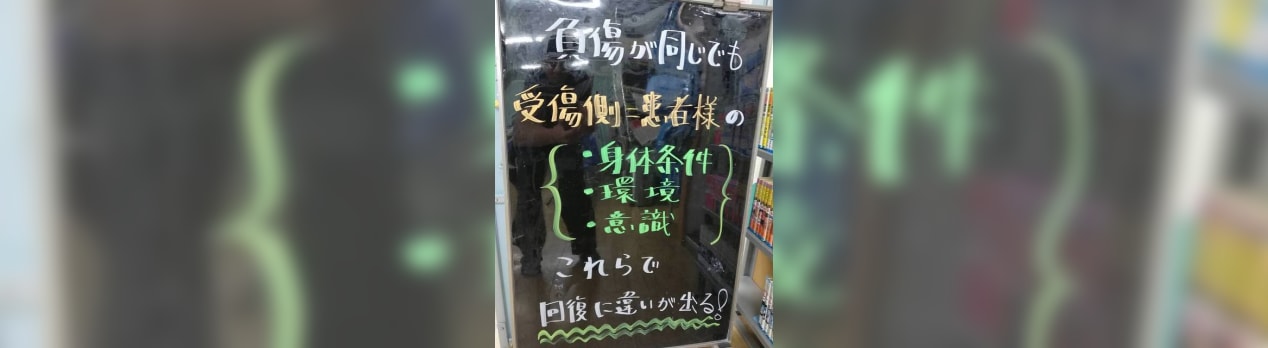 負傷が同じでも
受傷側=患者様の
・身体条件
・環境
・意識
これらで
回復に違いが出る!